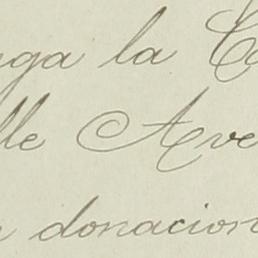 nga la C
lle Ave
donacion